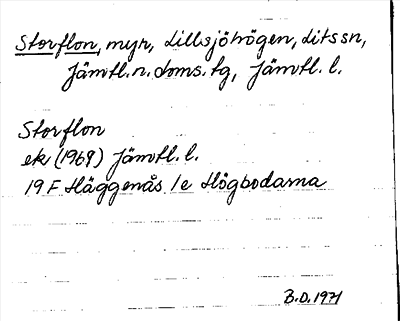 Storflon, myr, Lillsjöhögen, Lits sn,
Jämtl. n. doms. tg, Jämtl. l.
Storflon
ek (1969) Jämtl. l.
19 F Häggenås 1e Högbodarna
B.D. 1971